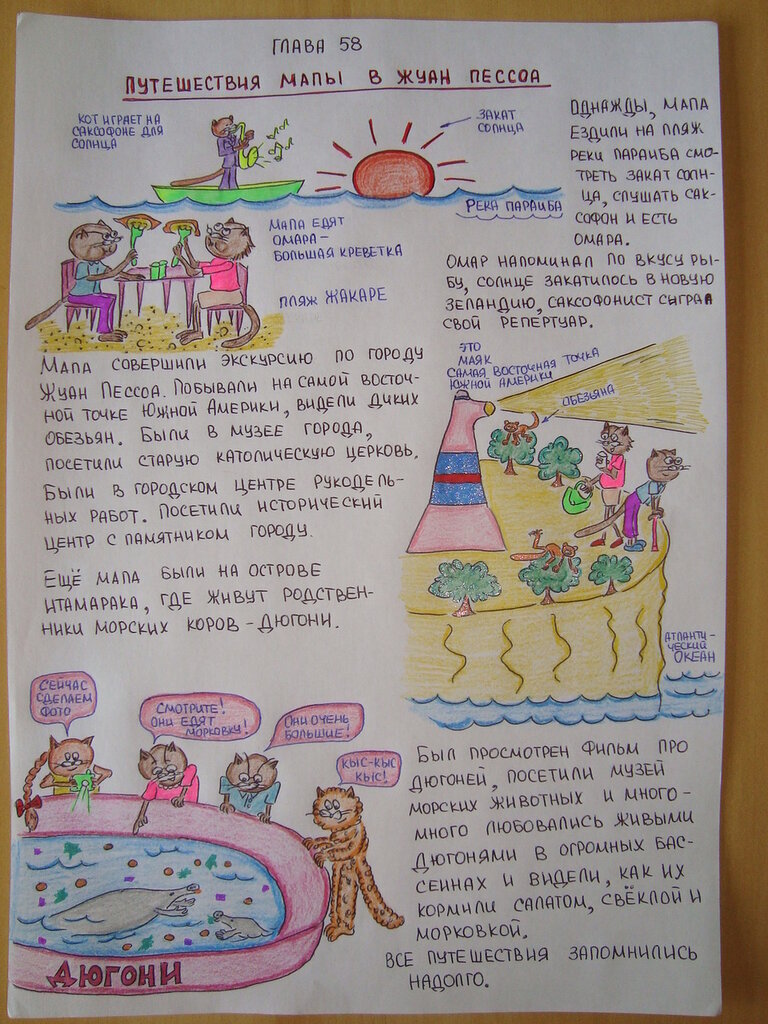 ГЛАВА 58
ПУТЕШЕСТВИЯ МАПЫ В ЖУАН ПЕССОА
КОТ ИГРАЕТ НА
САКСОФОНЕ ДЛЯ
СОЛНЦА
ЗАКАТ
СОЛНЦА
РЕКА ПАРАИБА
ОДНАЖДЫ, МАПА
ЕЗДИЛИ НА ПЛЯЖ
РЕКИ ПАРАИБА СМО-
ТРЕТЬ ЗАКАТ СОЛН-
ЦА, СЛУШАТЬ САК-
СОФОН И ЕСТЬ
ОМАРА.
МАПА ЕДЯТ
ОМАРА-
БОЛЬШАЯ КРЕВЕТКА
ПЛЯЖ ЖАКАРЕ
ОМАР НАПОМИНАЛ ПО ВКУСУ РЫ-
БУ, СОЛНЦЕ ЗАКАТИЛОСЬ В НОВУЮ
ЗЕЛАНДИЮ, САКСОФОНИСТ СЫГРАЛ
СВОЙ РЕПЕРТУАР.
МАПА СОВЕРШИЛИ ЭКСКУРСИЮ ПО ГОРОДУ
ЖУАН ПЕССОА. ПОБЫВАЛИ НА САМОЙ ВОСТОЧ-
НОЙ ТОЧКЕ ЮЖНОЙ АМЕРИКИ, ВИДЕЛИ ДИКИХ
ОБЕЗЬЯН. БЫЛИ В МУЗЕЕ ГОРОДА,
ПОСЕТИЛИ СТАРУЮ КАТОЛИЧЕСКУЮ ЦЕРКОВЬ.
БЫЛИ В ГОРОДСКОМ ЦЕНТРЕ РУКОДЕЛЬ-
НЫХ РАБОТ. ПОСЕТИЛИ ИСТОРИЧЕСКИЙ
ЦЕНТР С ПАМЯТНИКОМ ГОРОДУ.
ЕЩЁ МАПА БЫЛИ НА ОСТРОВЕ
ИТАМАРАКА, ГДЕ ЖИВУТ РОДСТВЕН-
НИКИ МОРСКИХ КОРОВ - ДЮГОНИ.
ЭТО
МАЯК
САМАЯ ВОСТОЧНАЯ ТОЧКА
ЮЖНОЙ АМЕРИКИ
ОБЕЗЬЯНА
АТЛАНТИ-
ЧЕСКИЙ
ОКЕАН
СЕЙЧАС
СДЕЛАЕМ
ФОТО
СМОТРИТЕ!
ОНИ ЕДЯТ
МОРКОВКУ!
ОНИ ОЧЕНЬ
БОЛЬШИЕ!
КЫС-КЫС
КЫС!
ДЮГОНИ
БЫЛ ПРОСМОТРЕН ФИЛЬМ ПРО
ДЮГОНЕЙ, ПОСЕТИЛИ МУЗЕЙ
МОРСКИХ ЖИВОТНЫХ И МНОГО-
МНОГО ЛЮБОВАЛИСЬ ЖИВЫМИ
ДЮГОНЯМИ В ОГРОМНЫХ БАС-
СЕИНАХ И ВИДЕЛИ, КАК ИХ
КОРМИЛИ САЛАТОМ, СВЁКЛОЙ И
МОРКОВКОЙ.
ВСЕ ПУТЕШЕСТВИЯ ЗАПОМНИЛИСЬ
НАДОЛГО.